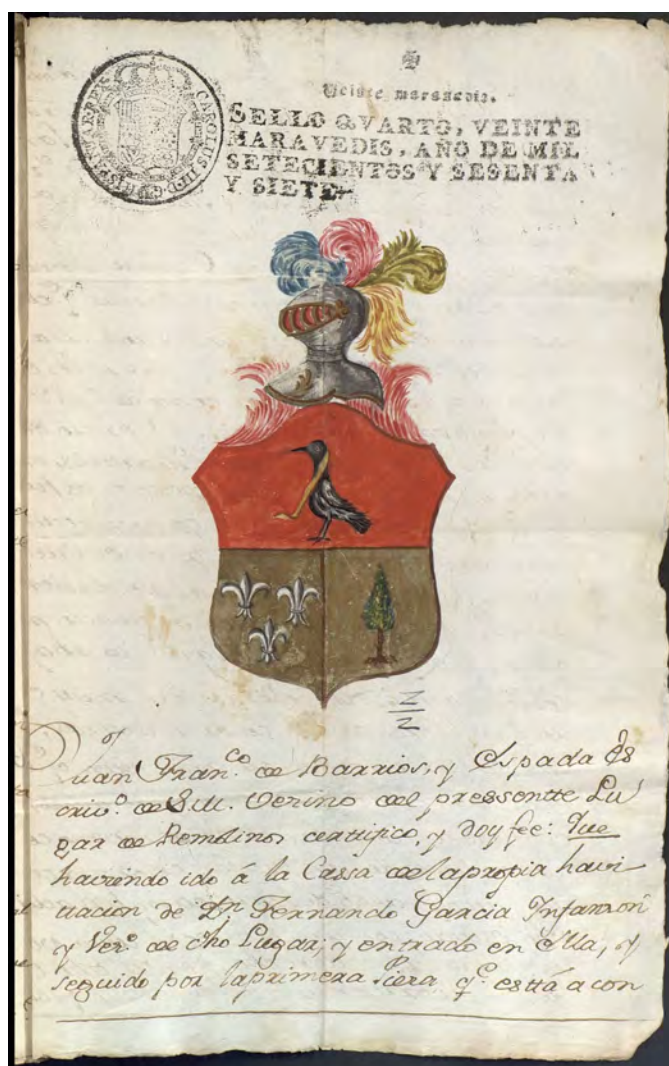 CAROLUS III D G HISPANIAR REX
Veinte maravedis.
SELLO QVARTO, VEINTE
MARAVEDIS, AÑO DE MIL
SETECIENTOS Y SESENTA
Y SIETE
Juan Fran.co de Barrios, y Espada Es
criv.o de S.M. Vezino del pressentte Lu
gar de Remolinos certifico, y doy fee: Que
haviendo ido á la Cassa de la propia havi
tacion de Dn Fernando Garcia Infanzon
y Vez.o de dho Lugar; y entrado en Ella, y
seguido por la primera Pieza q.e està á con